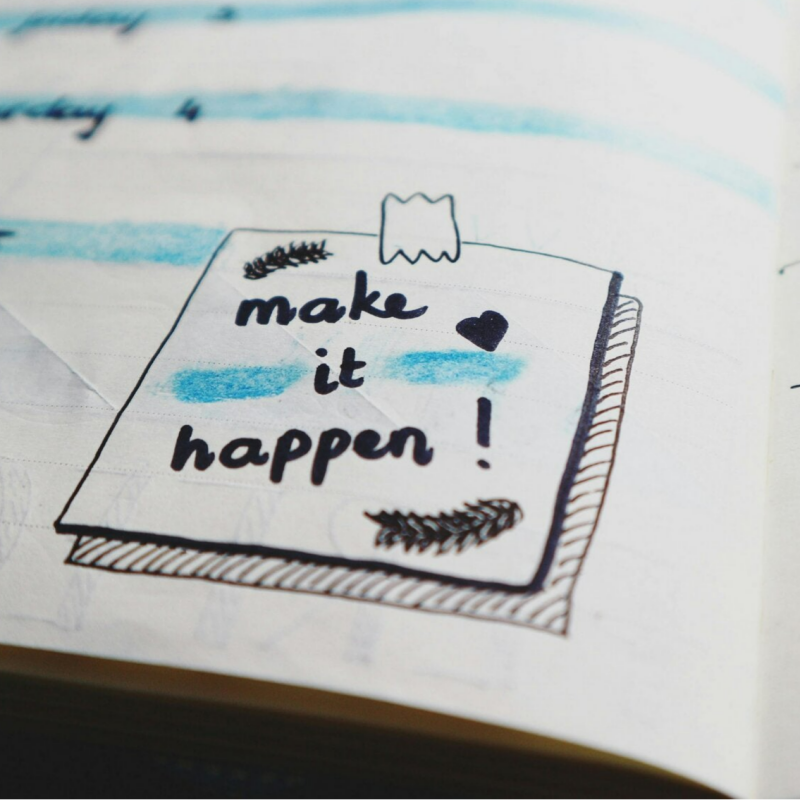 3
4
make
it
happen !